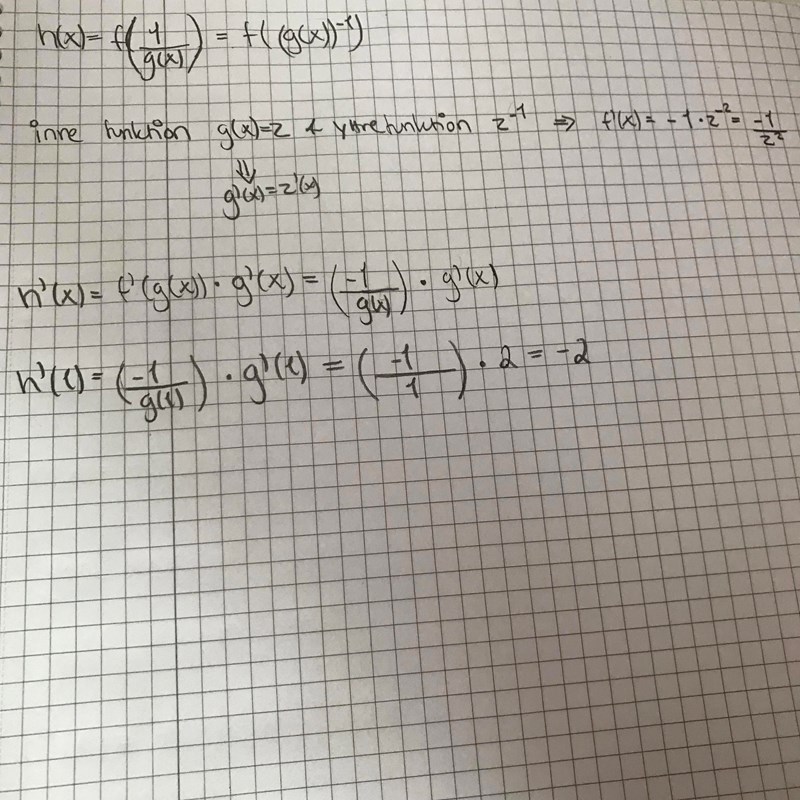 h(x) = f(1/g(x)) = f((g(x))⁻¹)
inre funktion g(x)=z & yttrefunktion z⁻¹ ⇒ f'(x) = -1·z⁻² = -1/z²
⇓
g'(x)=z'(x)
h'(x) = f'(g(x)) · g'(x) = (-1/g(x)) · g'(x)
h'(1) = (-1/g(1)) · g'(1) = (-1/1) · 2 = -2